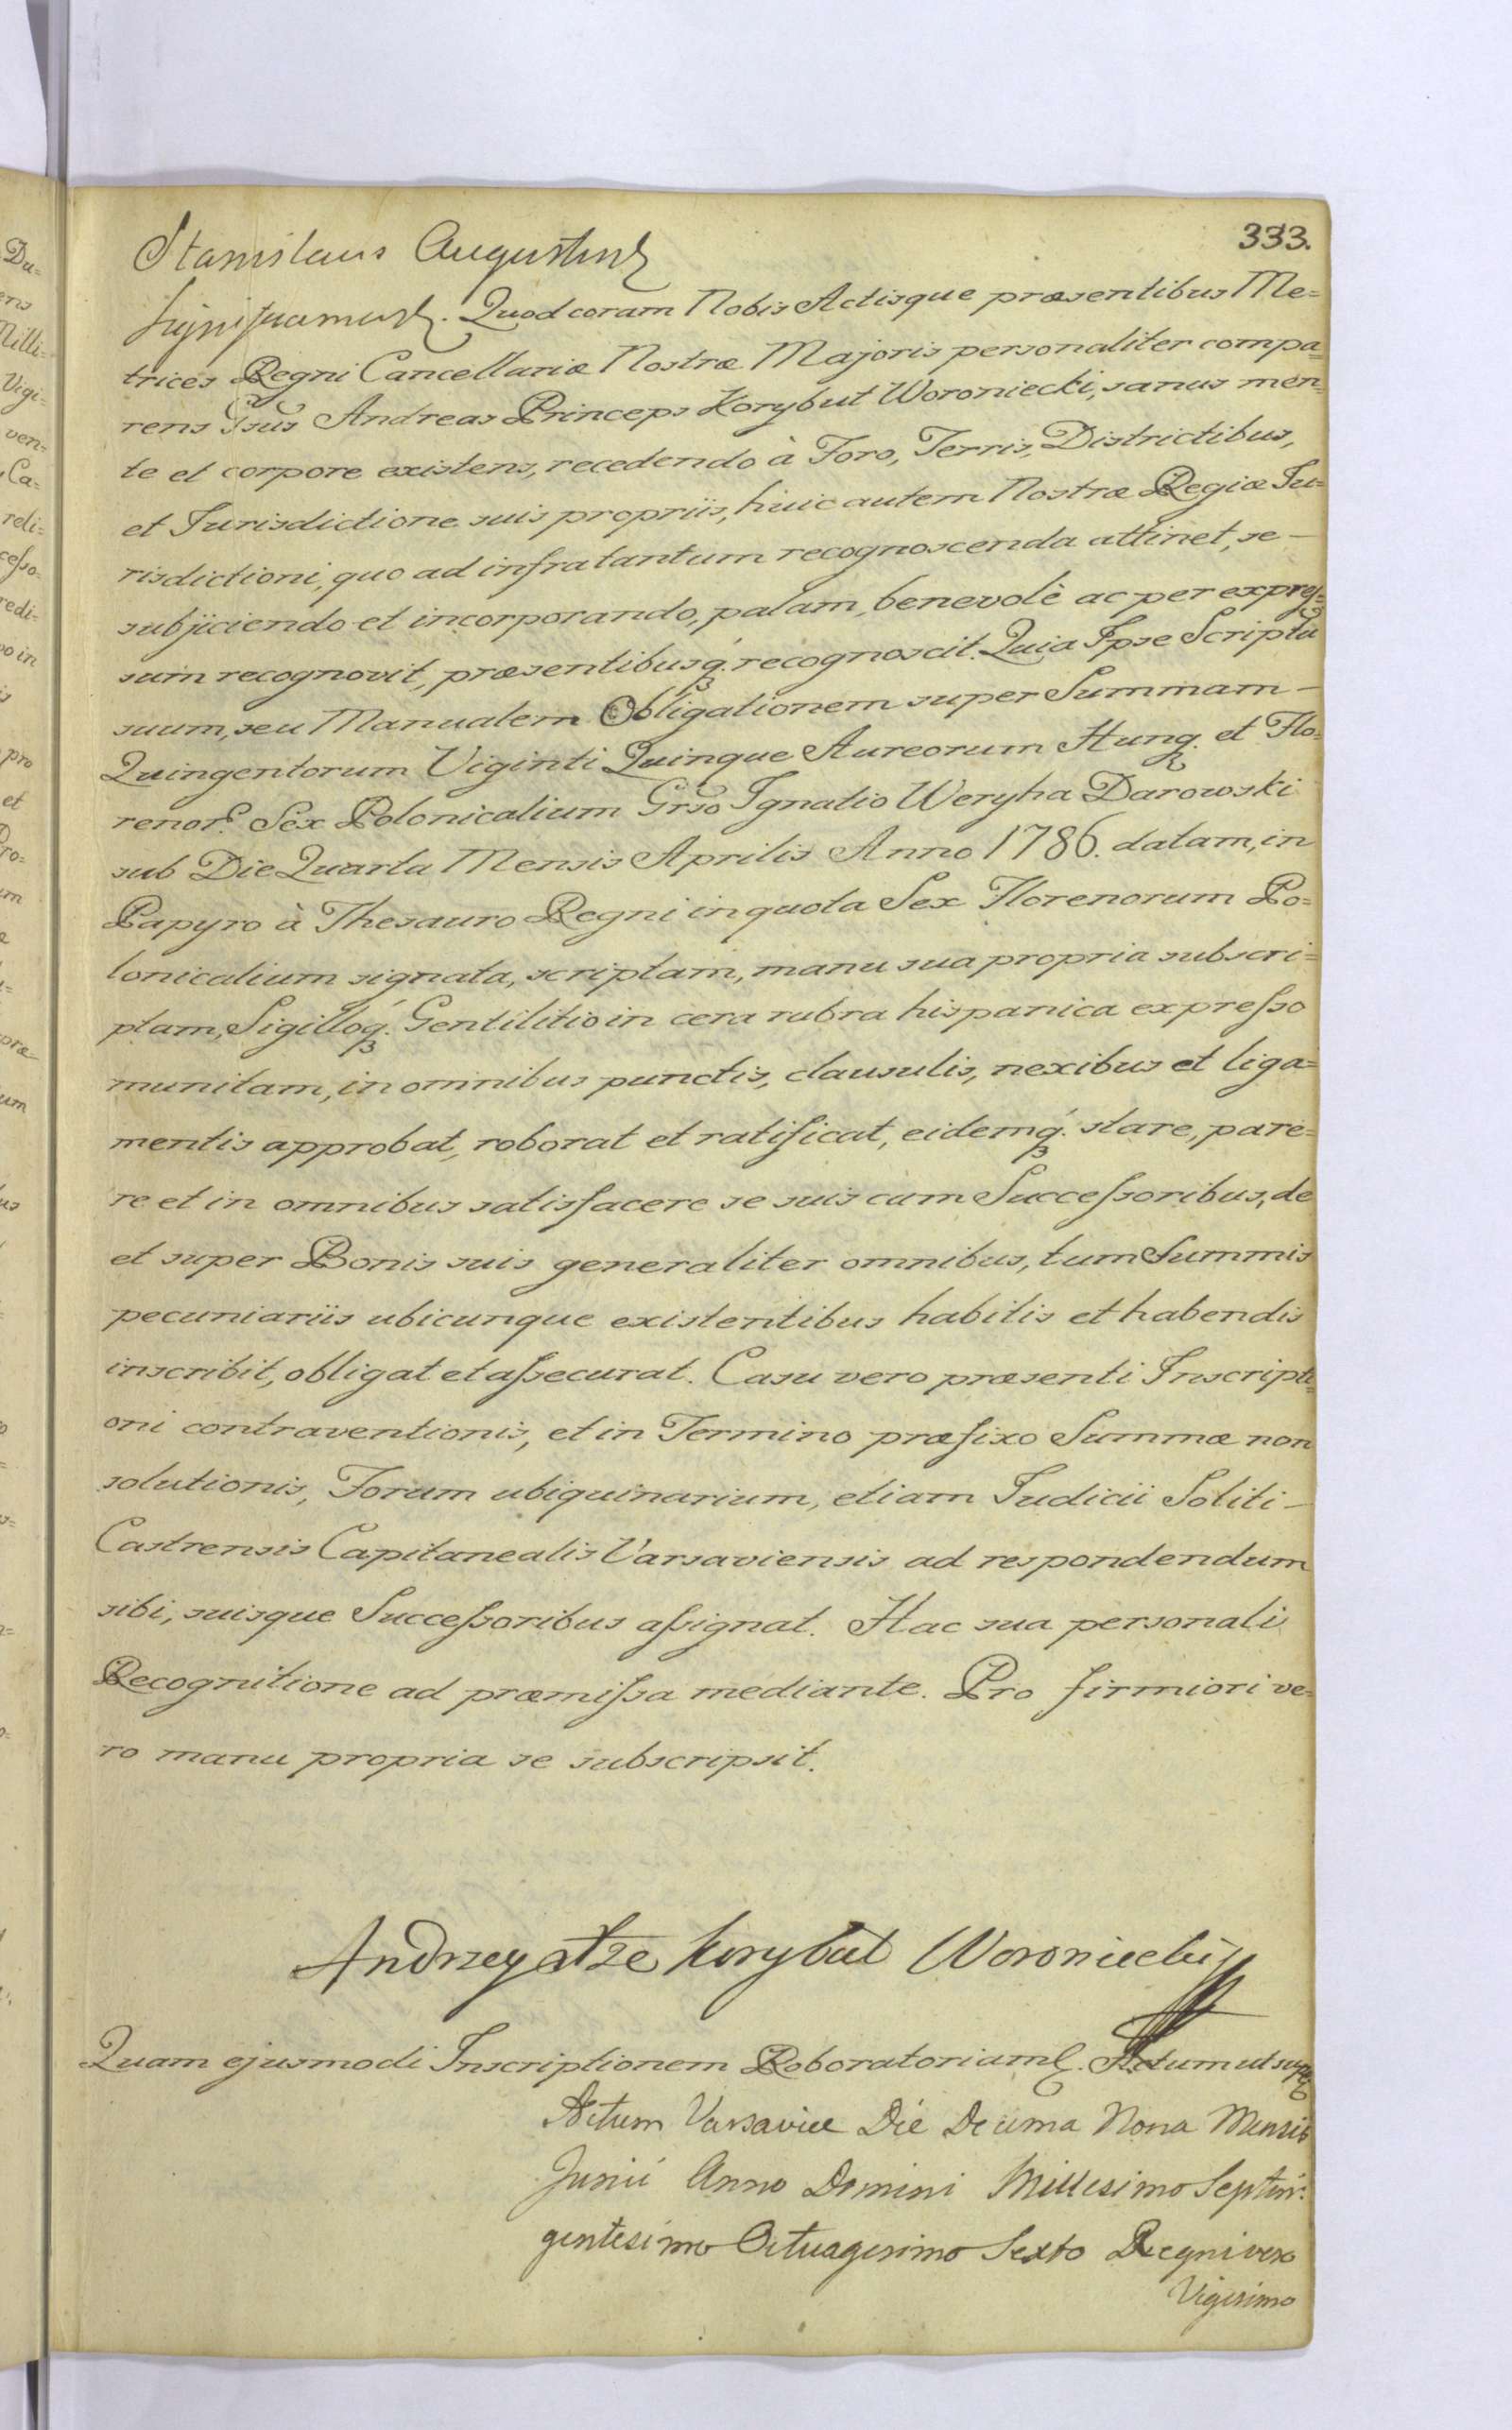 333.
Stanislaus Augustus
Significamus. Quod coram Nobis Actisque præsentibus Me=
trices Regni Cancellariæ Nostræ Majoris personaliter compa=
rens Gsus Andreas Princeps Korybut Woroniecki, sanus men=
te et corpore existens, recedendo à Foro, Terris, Districtibus,
et Jurisdictione suis propriis, huic autem Nostræ Regiæ Ju=
risdictioni, quo ad infra tantum recognoscenda attinet, se –
subjiciendo et incorporando, palam, benevolè ac per expres=
sum recognovit, præsentibusq́. recognoscit. Quia Ipse Scriptũ
suum, seu Manualem Obligationem super Summam –
Quingentorum Viginti Quinque Aureorum Hung. et Flo=
renor. Sex Polonicalium Grso Ignatio Weryha Darowski
sub Die Quarta Mensis Aprilis Anno 1786. datam, in
Papyro à Thesauro Regni in quota Sex Florenorum Po=
lonicalium signata, scriptam, manu sua propria subscri=
ptam, Sigilloq́. Gentilitio in cera rubra hispanica expresso
munitam, in omnibus punctis, clausulis, nexibus et liga=
mentis approbat, roborat et ratificat, eidemq́. stare, pare=
re et in omnibus satisfacere se suis cum Successoribus, de
et super Bonis suis generaliter omnibus, tum Summis
pecuniariis ubicunque existentibus habitis et habendis
inscribit, obligat et assecurat. Casu vero præsenti Inscripti=
oni contraventionis, et in Termino præfixo Summæ non
solutionis, Forum ubiquinarium, etiam Judicii Soliti –
Castrensis Capitanealis Varsaviensis ad respondendum
sibi, suisque Successoribus assignat. Hac sua personali
Recognitione ad præmissa mediante. Pro firmiori ve=
ro manu propria se subscripsit.
Andrzey Korybut Woroniecki
Quam ejusmodi Inscriptionem Roboratoriam. Actum ut supra
Actum Varsaviæ Die Decima Nona Mensis
Junii Anno Domini Millesimo Septin=
gentesimo Octuagesimo Sexto Regni vero
Vigesimo